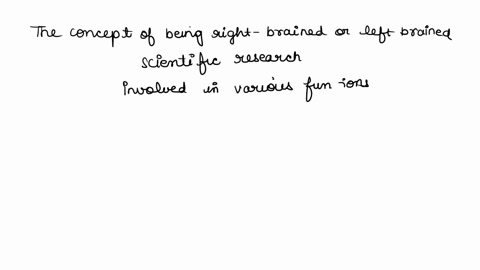 The concept of being right-brained or left brained
scientific research
involved in various fun ions